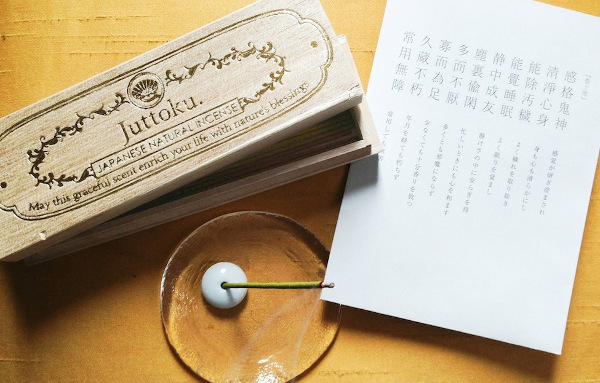 Juttoku.
JAPANESE NATURAL INCENSE
May this graceful scent enrich your life with nature's blessings.
感格鬼神
清淨心身
能除汚穢
能覺睡眠
静中成友
塵裏偸閑
多而不厭
寡而為足
久藏不朽
常用無障
感覚が研ぎ澄まされ
身も心も清らかにし
よく穢れを取り除き
よく眠りを覚まし
静けさの中に安らぎを得
忙しいときにも心を和ます
多くとも邪魔にならず
少なくても十分香りを放つ
年月を経ても朽ちず